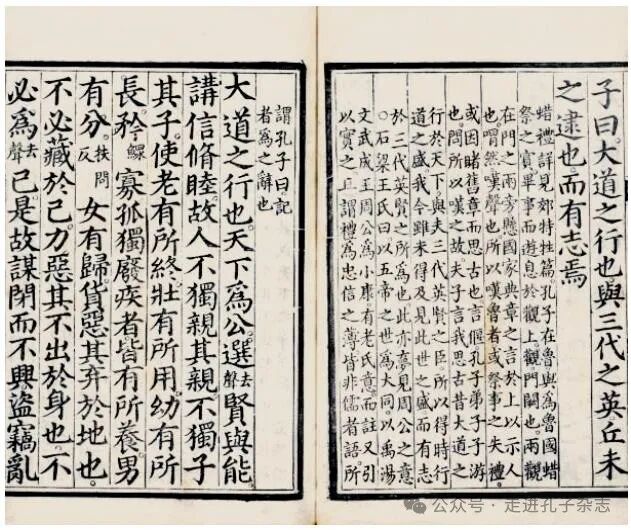 子曰大道之行也與三代之英丘未
之逮也而有志焉
蜡禮詳見郊特牲篇孔子在魯與為魯國蜡
祭之賓畢事而遊息於觀上觀門闕也兩觀
在門之兩旁懸國家典章之言於上以示人
也喟然嘆聲也所以嘆魯者或祭事之失禮
或因睹舊章而思古也言偃孔子弟子子游
也問所以嘆之故夫子言我思古昔大道之
行於天下與夫三代英賢之臣所以得時行
道之盛我今雖未得及見此世之盛而有志
於三代英賢之所為也此亦夢見周公之意
○石梁王氏曰以五帝之世為大同以禹湯
文武成王周公為小康有老氏意而註又引
以實之且謂禮為忠信之薄皆非儒者語所
謂孔子曰記
者為之辭也
大道之行也。天下為公。選去聲賢與能。
講信脩睦。故人不獨親其親。不獨子
其子。使老有所終。壯有所用。幼有所
長。矜鰥寡孤獨廢疾者皆有所養。男
有分。扶問反女有歸。貨惡其弃於地也。
不必藏於己。力惡其不出於身也。不
必為去聲己。是故謀閉而不興。盜竊亂
公众号·走进孔子杂志